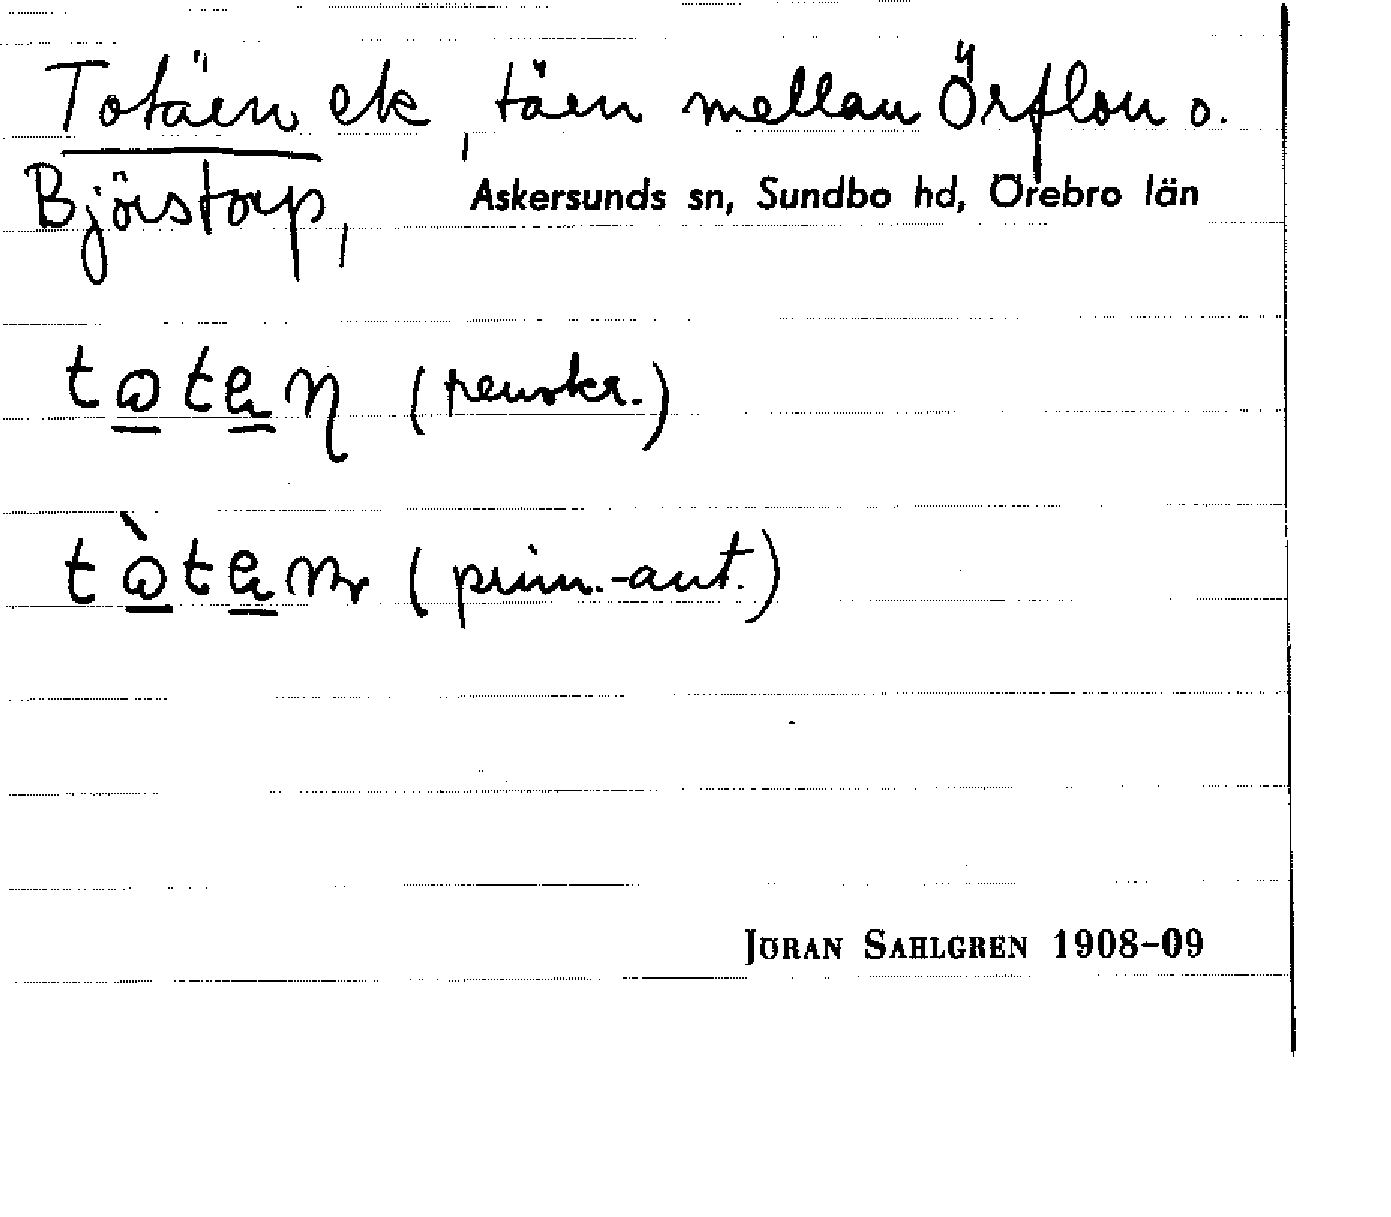 Totäen ek, täen mellan Örflon o.
Björstorp, Askersunds sn, Sundbo hd, Örebro län
(renskr.)
(prim.-ant.)
JÖRAN SAHLGREN 1908–09